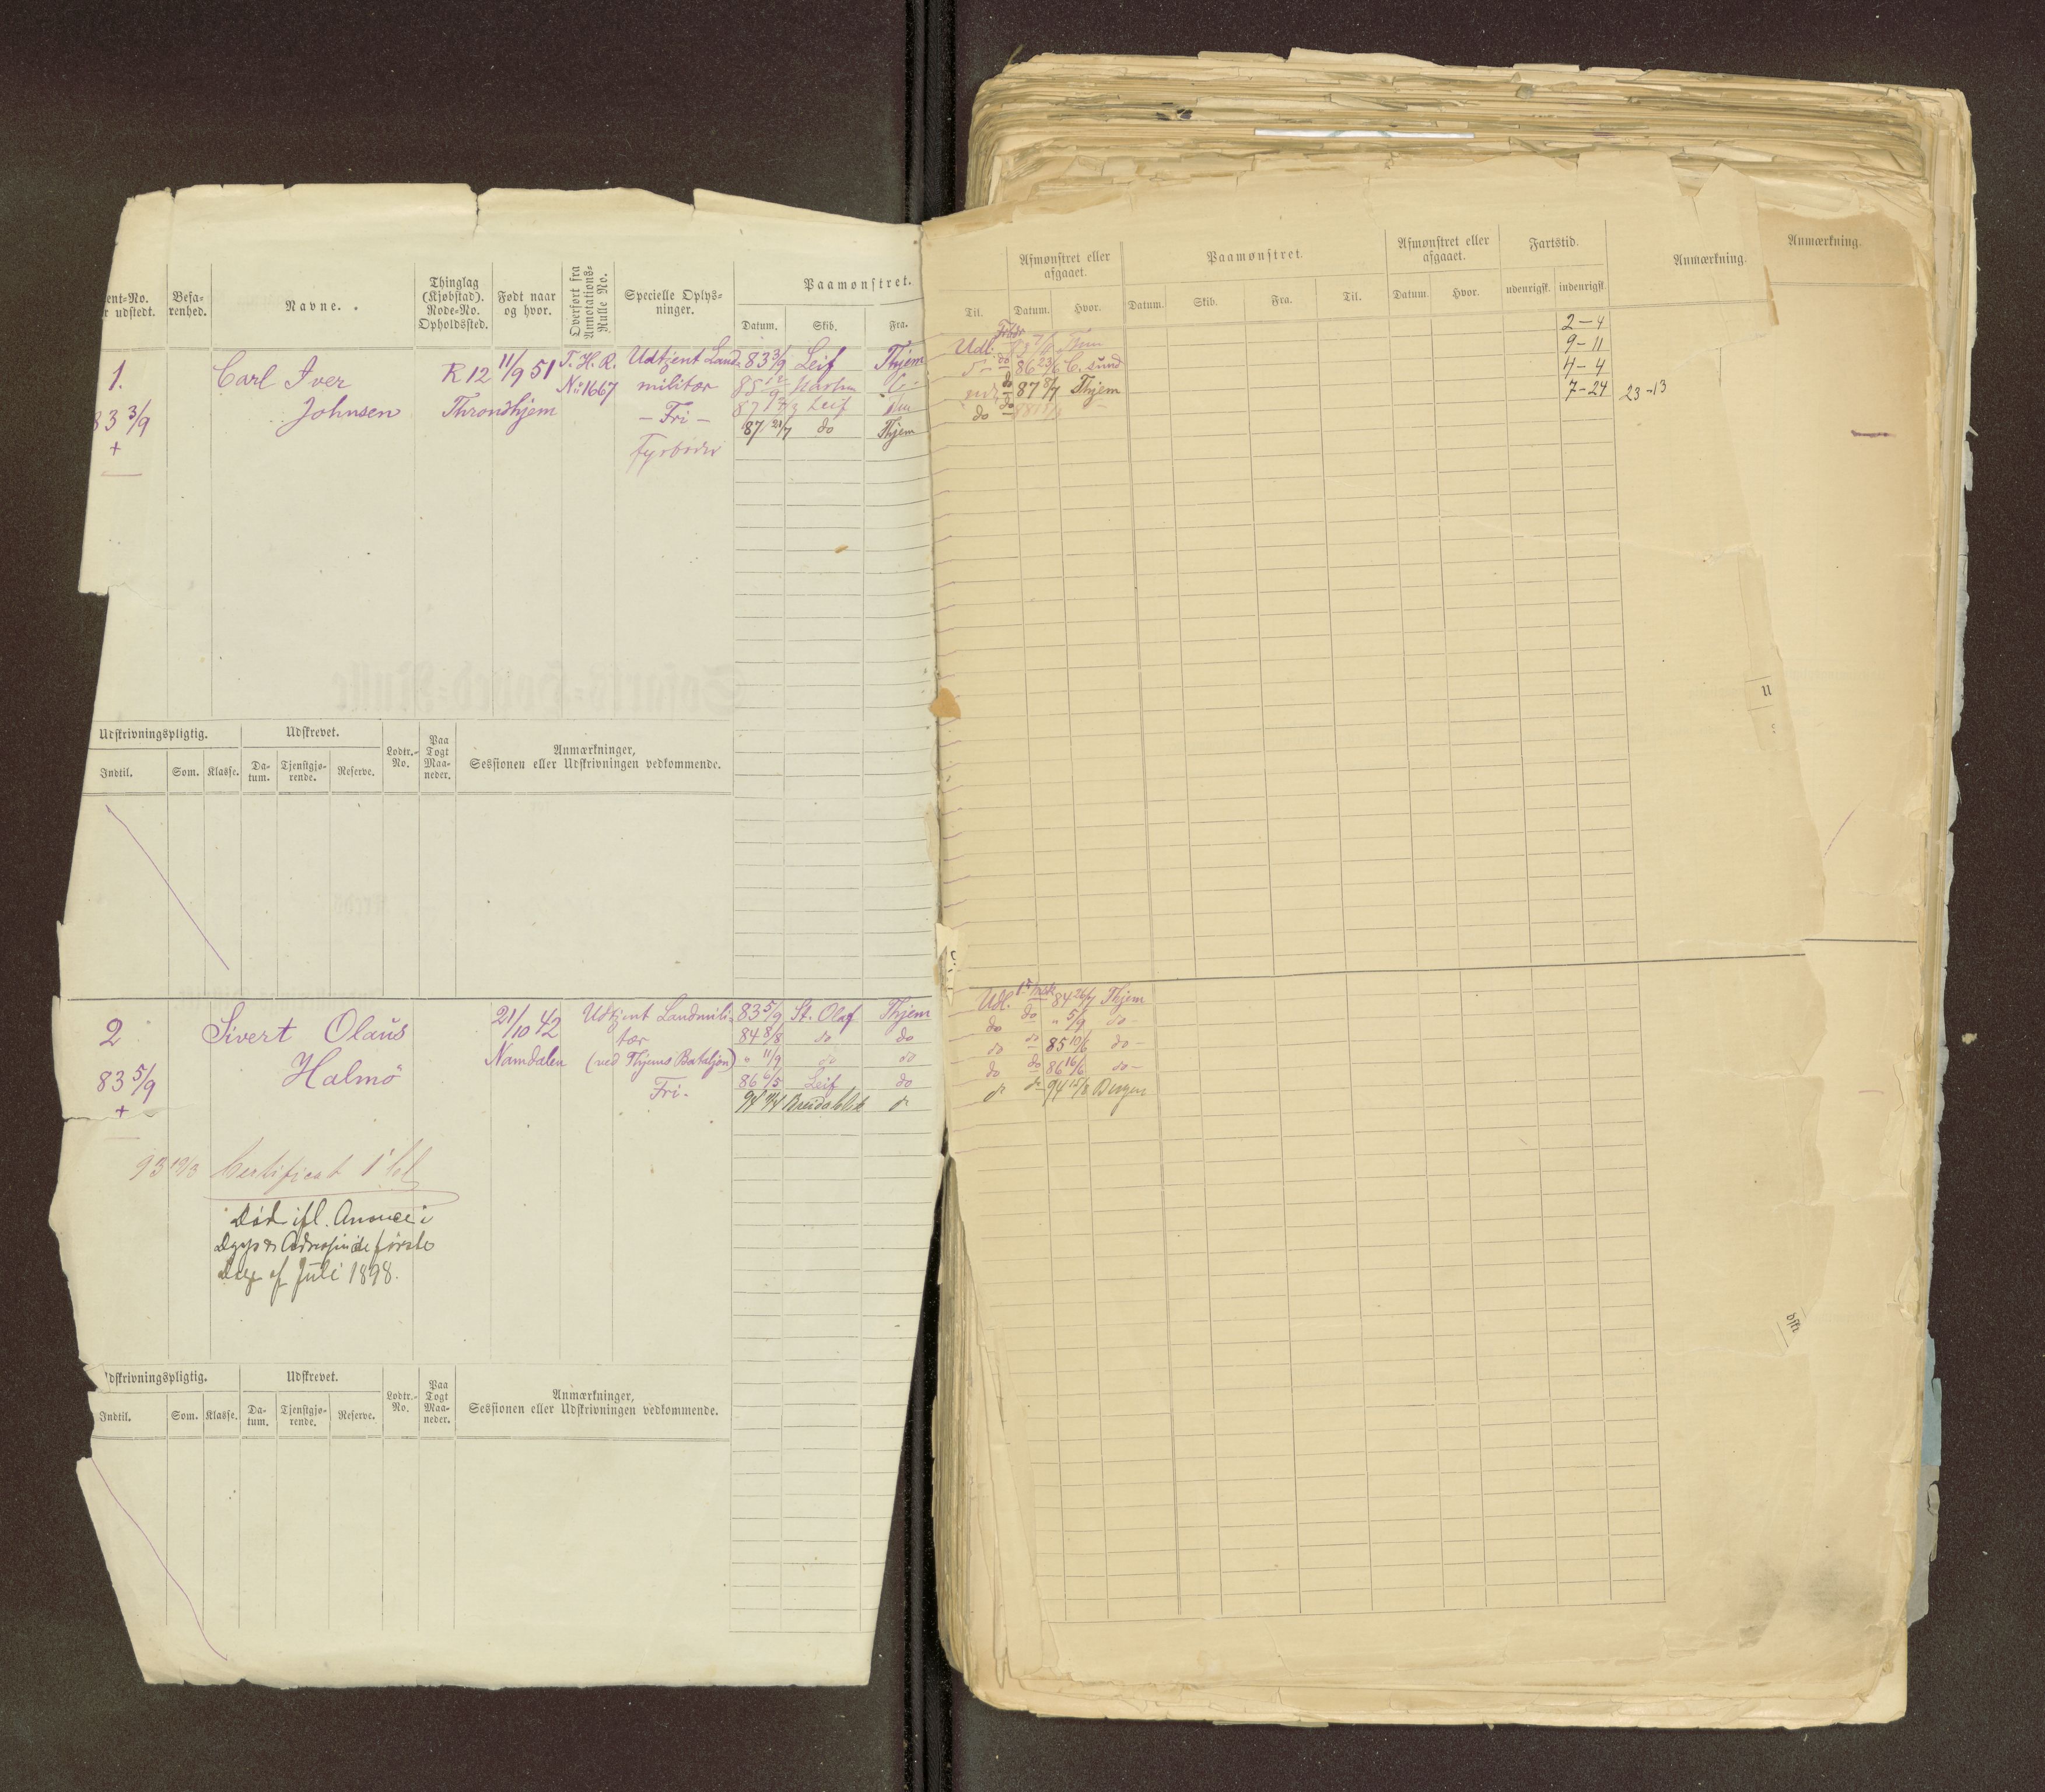 ent-No.
r udstedt.
Befa-
renhed.
Navne.
Thinglag
(Kjøbstad).
Rode-No.
Opholdssted.
Født naar
og hvor.
Overført fra
Annotations-
Rulle No.
Specielle Oplys-
ninger.
Paamønstret.
Datum.
Skib.
Fra.
1.
83 3/9
+
Carl Iver
Johnsen
R 12
Throndhjem
11/9 51
T. H. R.
No 1667
Udtjent Land-
militær
- Fri -
Fyrbøder
83 3/9 Leif Thjem
87 21/7 do Thjem
Udskrivningspligtig.
Udskrevet.
Lodtr.-
No.
Paa
Togt
Maa-
neder.
Anmærkninger,
Sessionen eller Udskrivningen vedkommende.
Indtil.
Som.
Klasse.
Da-
tum.
Tjenstgjø-
rende.
Reserve.
2
83 5/9
+
Sivert Olaus
Halmö
21/10 42
Namdalen
Udtjent Landmili-
tær
(ved Thjems Bataljon)
Fri.
83 5/9 St. Olaf Thjem
84 8/8 do do
" 11/9 do do
86 6/5 Leif do
93 19/3 Certificat 1' Kl
Død ifl. Anonce i
første
Dage af Juli 1898.
dskrivningspligtig.
Udskrevet.
Lodtr.-
No.
Paa
Togt
Maa-
neder.
Anmærkninger,
Sessionen eller Udskrivningen vedkommende.
Indtil.
Som.
Klasse.
Da-
tum.
Tjenstgjø-
rende.
Reserve.
Til.
Afmønstret eller
afgaaet.
Datum.
Hvor.
Paamønstret.
Datum.
Skib.
Fra.
Til.
Afmønstret eller
afgaaet.
Datum.
Hvor.
Fartstid.
udenrigsk.
indenrigsk.
Anmærkning.
Anmærkning.
Udl.
86 23/6 C. sund
do 87 8/7 Thjem
do do
2-4
9-11
4-4
7-24
23-13
Udl. 84 26/7 Thjem
do do " 5/9 do -
do do 85 10/6 do -
do do 86 16/6 do -
94 15/8 Bergen